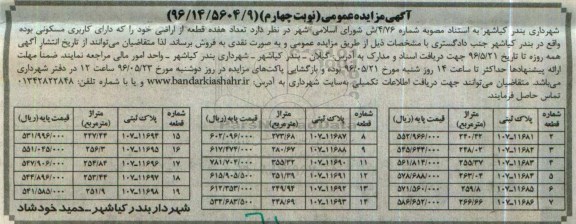 آگهی مزایده عمومی (نوبت چهارم) (۹۶/۱۴/۵۶۰۴/۹)
شهرداری بندر کیاشهر به استناد مصوبه شماره ۴/۷۶/ش شورای اسلامی شهر در نظر دارد تعداد هفده قطعه از اراضی خود را که دارای کاربری مسکونی بوده
واقع در بندر کیاشهر جنب دادگستری با مشخصات ذیل از طریق مزایده عمومی و به صورت نقدی به فروش برساند. لذا متقاضیان می‌توانند از تاریخ انتشار آگهی
همه روزه تا تاریخ ۹۶/۵/۲۱ جهت دریافت اسناد و مدارک به آدرس: گیلان - بندر کیاشهر - شهرداری بندر کیاشهر - واحد امور مالی مراجعه نمایند. ضمناً مهلت
ارائه پیشنهادها حداکثر تا ساعت ۱۴ روز شنبه مورخ ۹۶/۰۵/۲۱ بوده و بازگشایی پاکت‌های مزایده در روز دوشنبه مورخ ۹۶/۰۵/۲۳ ساعت ۱۲ در دفتر شهرداری
می‌باشد. متقاضیان می‌توانند جهت دریافت اطلاعات تکمیلی به‌سایت شهرداری به آدرس: www.bandarkiashahr.ir و یا با شماره تلفن: ۰۱۳۴۲۸۲۲۸۴۸
تماس حاصل فرمایند.
شماره قطعه پلاک ثبتی متراژ (مترمربع) قیمت پایه (ریال)
۲ ۱۰۷-۱۱۶۸۱ ۲۴۰/۴۲ ۵۵۲/۹۶۶/۰۰۰
۳ ۱۰۷-۱۱۶۸۲ ۲۴۸/۰۲ ۵۴۵/۶۴۴/۰۰۰
۴ ۱۰۷-۱۱۶۸۳ ۲۵۵/۳۷ ۵۶۱/۸۱۴/۰۰۰
۵ ۱۰۷-۱۱۶۸۴ ۲۶۳/۰۴ ۵۷۸/۶۸۸/۰۰۰
۶ ۱۰۷-۱۱۶۸۵ ۲۵۹/۸ ۵۷۱/۵۶۰/۰۰۰
۷ ۱۰۷-۱۱۶۸۶ ۲۶۶/۶۶ ۵۸۶/۶۵۲/۰۰۰
شماره قطعه پلاک ثبتی متراژ (مترمربع) قیمت پایه (ریال)
۸ ۱۰۷-۱۱۶۸۷ ۲۷۳/۶۸ ۶۰۲/۰۹۶/۰۰۰
۹ ۱۰۷-۱۱۶۸۸ ۲۸۰/۶۷ ۶۱۷/۴۷۴/۰۰۰
۱۱ ۱۰۷-۱۱۶۹۰ ۳۵۵/۳۲ ۷۸۱/۷۰۴/۰۰۰
۱۲ ۱۰۷-۱۱۶۹۱ ۲۵۱/۳۹ ۶۱۵/۹۰۵/۵۰۰
۱۳ ۱۰۷-۱۱۶۹۲ ۲۴۹/۹۴ ۶۱۲/۳۵۳/۰۰۰
۱۴ ۱۰۷-۱۱۶۹۳ ۲۴۸/۶۹ ۵۳۴/۶۸۳/۵۰۰
شماره قطعه پلاک ثبتی متراژ (مترمربع) قیمت پایه (ریال)
۱۵ ۱۰۷-۱۱۶۹۴ ۲۴۷/۴۴ ۵۳۱/۹۹۶/۰۰۰
۱۶ ۱۰۷-۱۱۶۹۵ ۲۵۶/۳ ۵۵۱/۰۴۵/۰۰۰
۱۷ ۱۰۷-۱۱۶۹۶ ۲۵۴/۸۴ ۵۴۷/۹۰۶/۰۰۰
۱۸ ۱۰۷-۱۱۶۹۷ ۵۴۴/۸۹۶/۰۰۰
۱۹ ۱۰۷-۱۱۶۹۸ ۲۵۱/۹ ۵۴۱/۵۸۵/۰۰۰
شهردار بندر کیاشهر - حمید خودشاد